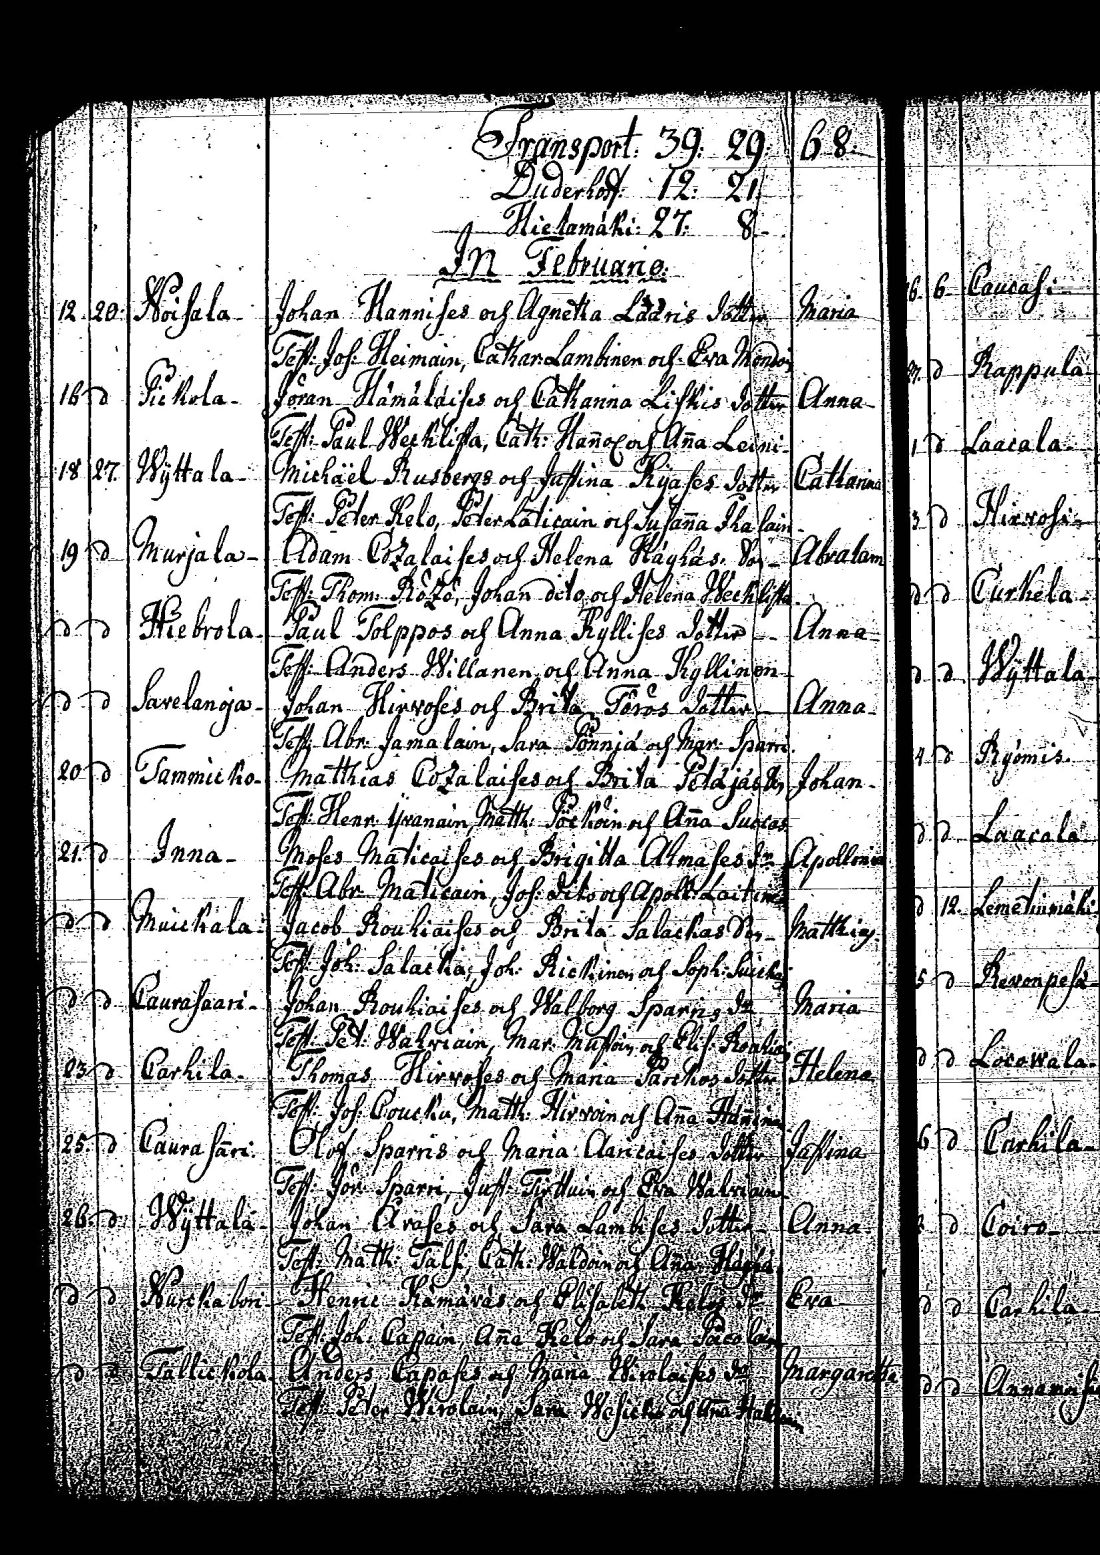 Transport: 39: 29: 68:
Duderhoff: 12: 21
Hietamäki: 27: 8
In Februario:
12 20 Noisala Johan Hannises och Agnetha Lääris Dotter Maria
Test: Joh: Heimain, Cathar Lambinen och Eva
16 d Pickola Jöran Hämäläises och Catharina Liskis Dotter Anna
Test: Paul Weckliska, Cath: och Aña Leini
18 27 Wÿttala Michäel Rusbergs och Justina Kijases Dotter Catharina
Test: Peter Kelo, Peter Laticain och Susaña Ihalain
19 d Murjala Adam Cozalaises och Helena Häghäs Son Abraham
Test: Thom: Rözö, Johan dito och Helena Weckliska
d d Hiebrola Paul Tolppos och Anna Kyllises Dotter Anna
Test: Anders Willanen och Anna Kyllinen
d d Savelanoja Johan Hirvoses och Brita Törös Dotter Anna
Test: Abr: Jamalain, Sara Pönniä och Mar: Sparri
20 d Tammicko Matthias Cozalaises och Brita Petäjäs Son Johan
Test: Henr Matth: Pöcköin och Aña Suckas
21 d Inna Moses Maticaises och Brigitta Atmases Dr Apollonia
Test: Abr Maticain, Joh: dito och Apoll: Laitin
d d Muickala Jacob Rouhiaises och Brita Salackas Son Matthias
Test: Joh: Salacka, Joh: Rickinen och Soph: Suicka
d d Caurasaari Johan Rouhiaises och Walborg Sparris Dr Maria
Test: Pet: Wahviain, Mar: och Elis:
23 d Carhila Thomas Hirvoses och Maria Parckos Dotter Helena
Test: Joh: Coucku, Matth: Hirvoin och Aña Hañinen
25 d Caurasari Olof Sparris och Maria Aaricaises Dotter Justina
Test: Jör: Sparri, Just: och Eva Wahviain
26 d Wÿttala Johan Avases och Sara Lambises Dotter Anna
Test: Matth: Talsi, Cath: Waldoin och Aña Häghä
d d Nurckabori Henric Hämäräs och Elisabeth Kelos Dr Eva
Test: Joh: Capain, Aña Kelo och Sara
d d Tallickola Anders Capases och Maria Wirolaises Dr Margaretha
Test: Peter Wirolain, Sara och Aña
6 Caucasi
d Rappula
d Laacala
d Hirvosi
d Curkela
d Wÿttala
d Rÿömis
d Laacala
12 Lemetinmäki
d Revonpesä
d Locowala
d Carhila
d Coiro
d Carhila
d